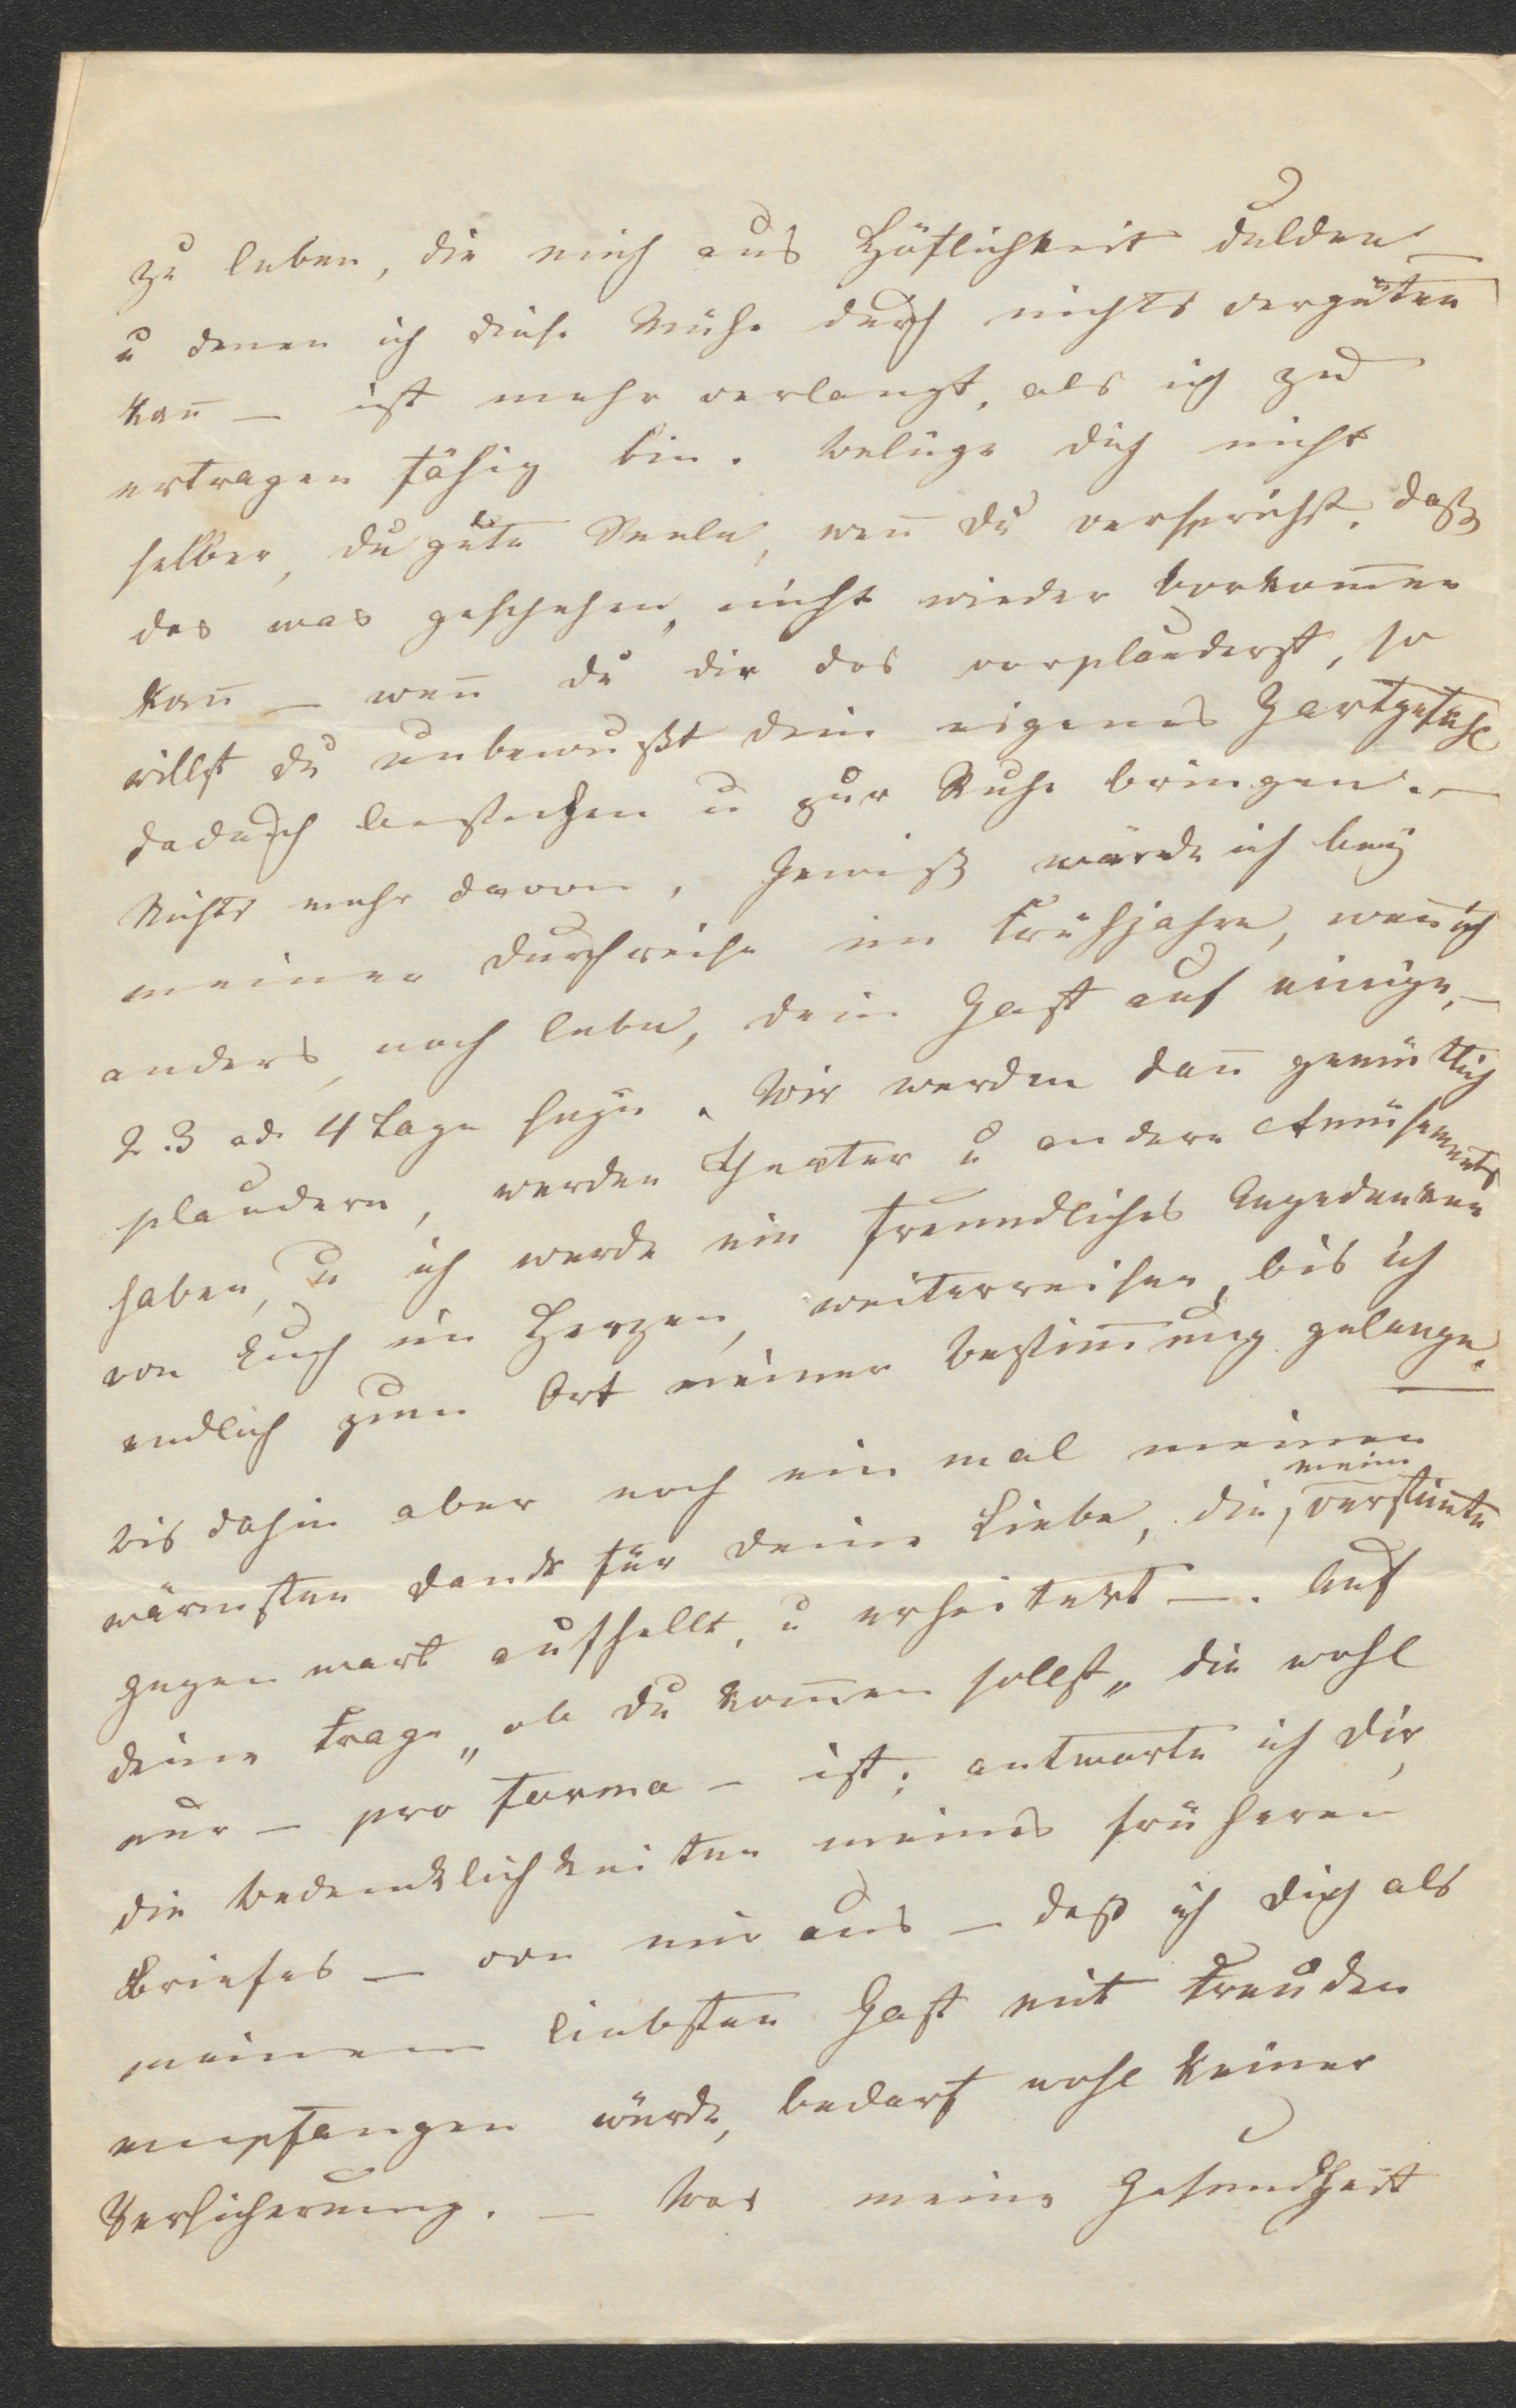 zu leben, die mich aus Höflichkeit dulden
u denen ich diese Mühe durch nichts vergüten
kan̄ — ist mehr verlangt, als ich zu
ertragen fähig bin. Belüge dich nicht
selber, du gute Seele, wen̄ du versprichst, daß
das was geschehen, nicht wieder vorkom̄en
kan̄ — wen̄ du dir das vorplauderst, so
willst du unbewußt dein eigenes Zartgefühl
dadurch bestechen u zur Ruhe bringen. —
Nichts mehr davon, Gewiß würde ich bey
meiner Durchreise im Frühjahre, wen̄ ich
anders noch lebe, dein Gast auf einige, —
2. 3 od. 4 Tage seyn. Wir werden dan̄ gemütlich
plaudern, werden Theater u andere Amüsements
haben, u ich werde ein freundliches Angedenken
von Euch im Herzen, weiterreisen, bis ich
endlich zum Ort meiner Bestim̄ung gelange.
bis dahin aber noch ein mal meinen
wärmsten Dank für deine Liebe, die, meine verstim̄te
Gegenwart aufhellt, u erheitert —. Auf
deine Frage „ob du kom̄en sollst„ die wohl
nur — pro forma — ist, antworte ich dir,
die Bedenklichkeiten meines früheren
Briefes — von mir aus — daß ich dich als
meinem liebsten Gast mit Freuden
empfangen würde, bedarf wohl keiner
Versicherung. — Was meine Gesundheit